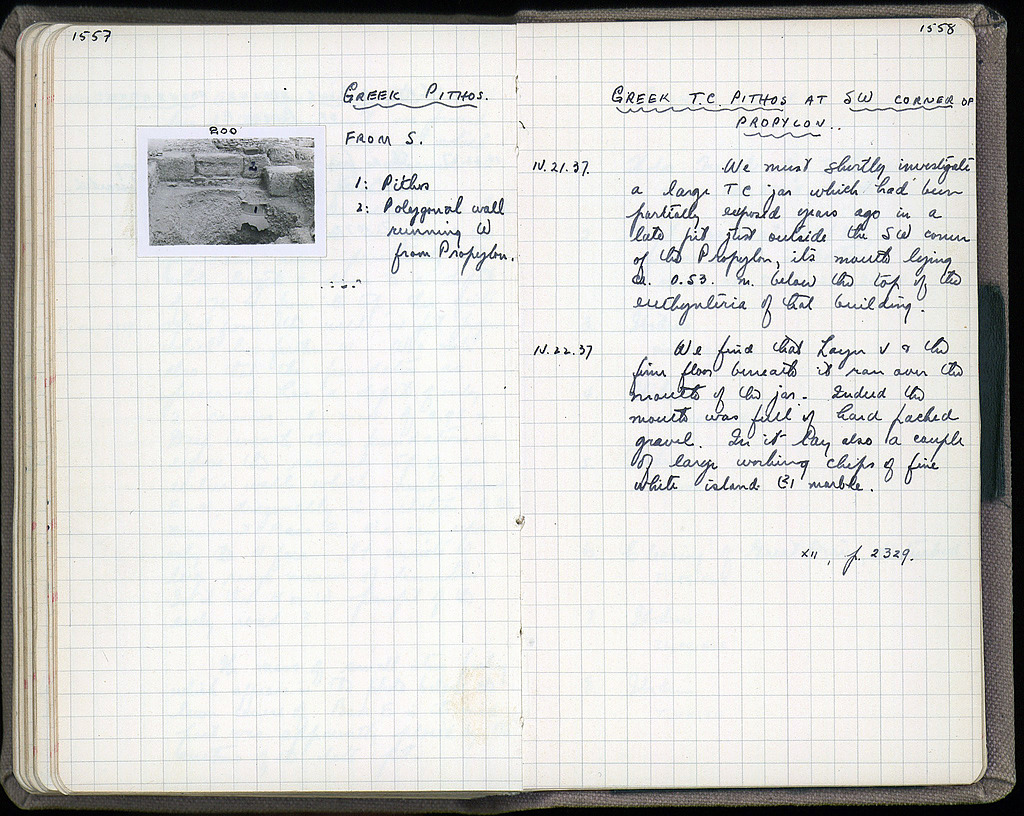 1557
GREEK PITHOS.
200
FROM S.
1: Pithos
2: Polygonal wall
running W
from Propylon.
1558
GREEK T.C. PITHOS AT SW CORNER OF
PROPYLON..
IV.21.37. We must shortly investigate
a large TC jar which had been
partially exposed years ago in a
late pit just outside the SW corner
of the Propylon, its mouth lying
ca. 0.53. m. below the top of the
euthynteria of that building.
IV.22.37 We find that Layer V & the
firm floor beneath it ran over the
mouth of the jar. Indeed the
mouth was full of hard packed
gravel. In it lay also a couple
of large working chips of fine
white island marble.
XII, p. 2329.